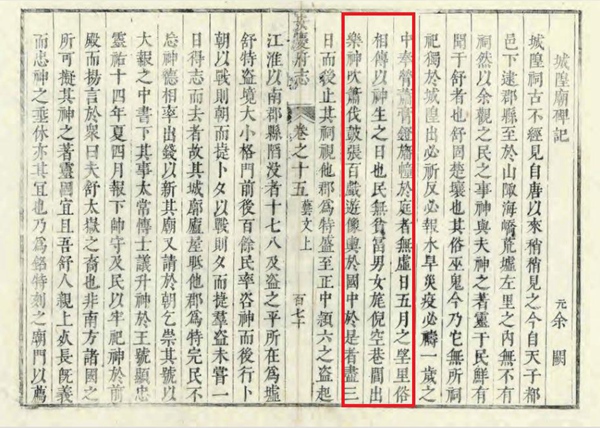 城隍廟碑記
元余闕
城隍祠古不經見自唐以來稍稍見之今自天子都
邑下逮郡縣至於山陬海嶠荒墟左里之內無不有
祠然以余觀之民之事神與夫神之著靈于民鮮有
聞于舒者也舒固楚壤也其俗巫鬼今乃它無所祠
祀獨於城隍出必祈反必報水旱疾疫必禱一歲之
中奉膋蕭膏鐙旛幢於庭者無虛日五月之望里俗
相傳以神生之日也民無貧富男女旄倪空巷閭出
樂神吹簫伐鼓張百戲遊像輿於國中於是者盡三
日而後止其祠視他郡爲特盛至正中潁六之盜起
安慶府志 卷之十五 藝文上 百七十
江淮以南郡縣陷没者十七八及盜之平所在爲墟
舒特盜境大小格鬥前後百餘民率咨神而後行卜
朝以戰則朝而捷卜夕以戰則夕而捷羣盜未嘗一
日得志而去者故其城廓廬屋眡他郡爲特完民不
忘神德相率出錢以新其廟又請於朝乞崇其號以
大報之中書下其事太常博士議升神於王號顯忠
靈祐十四年夏四月報下帥守及民以牢祀神於前
殿而揚言於衆曰夫舒太嶽之裔也非南方諸國
所可擬其神之著靈固宜且吾舒人親上死長旣義
而忠神之垂休亦其宜也乃爲銘特刻之廟門以薦